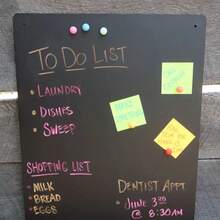 TO DO LIST
• LAUNDRY
• DISHES
• SWEEP
SHOPPING LIST
• MILK
• BREAD
• EGGS
DENTIST APPT
• JUNE 3RD
@ 8:30AM